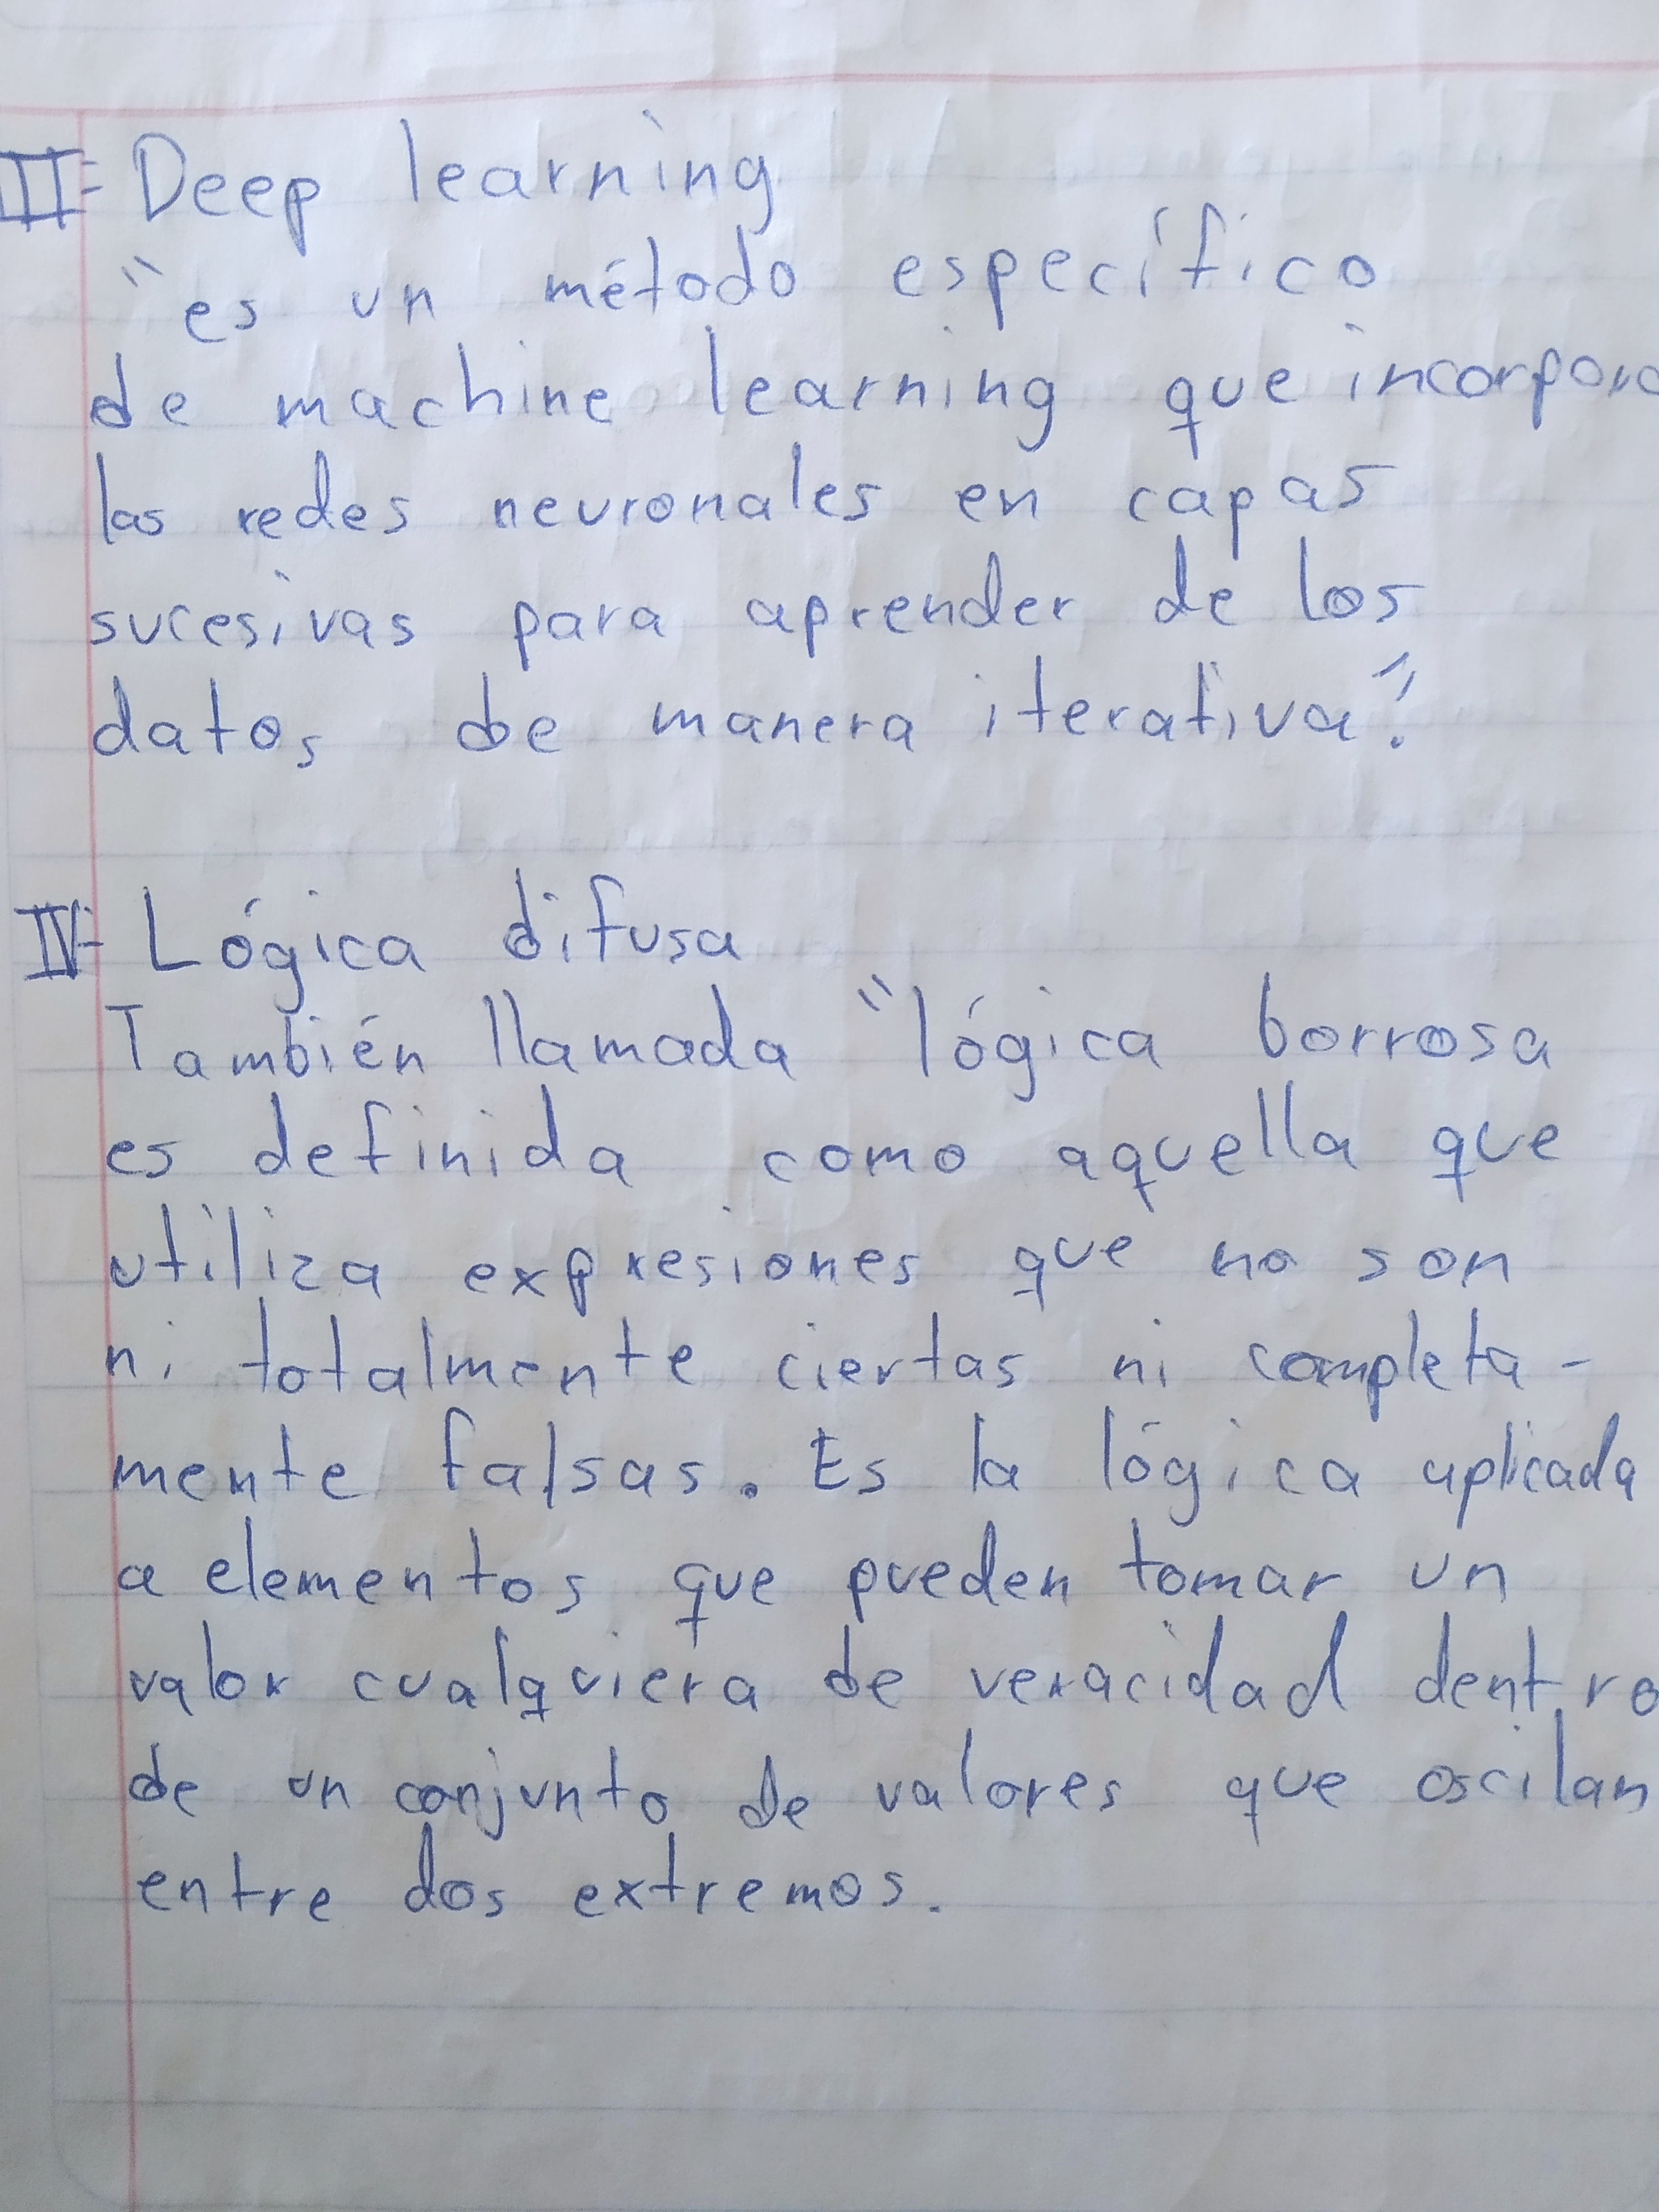 III- Deep learning
"es un método específico
de machine learning que incorpora
las redes neuronales en capas
sucesivas para aprender de los
datos de manera iterativa".
IV- Lógica difusa
También llamada "lógica borrosa
es definida como aquella que
utiliza expresiones que no son
ni totalmente ciertas ni completa-
mente falsas. Es la lógica aplicada
a elementos que pueden tomar un
valor cualquiera de veracidad dentro
de un conjunto de valores que oscilan
entre dos extremos.